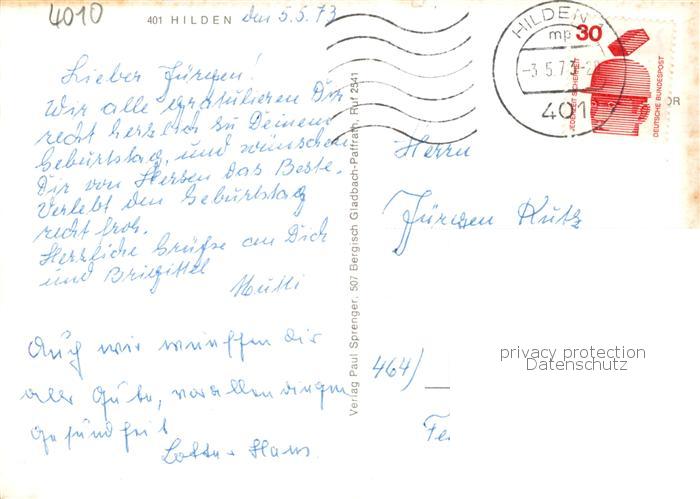 4010
401 HILDEN den 5.5.73
Lieber Jürgen!
Wir alle gratulieren Dir
recht herzlich zu Deinem
Geburtstag, und wünschen
Dir von Herzen das Beste.
Verlebt den Geburtstag
recht froh.
Herzliche Grüße an Dich
und Brigittel
Mutti
Auch wir wünschen dir
alles Gute, vor allen dingen
Gesundheit
Lotte + Hans
Verlag Paul Sprenger, 507 Bergisch Gladbach-Paffrath, Ruf 2541
HILDEN 1
mp
-3.5.73-20
401
30
JEDERZEIT SICHERHEIT
DEUTSCHE BUNDESPOST
OR
Herrn
Jürgen Kutz
464)
privacy protection
Datenschutz